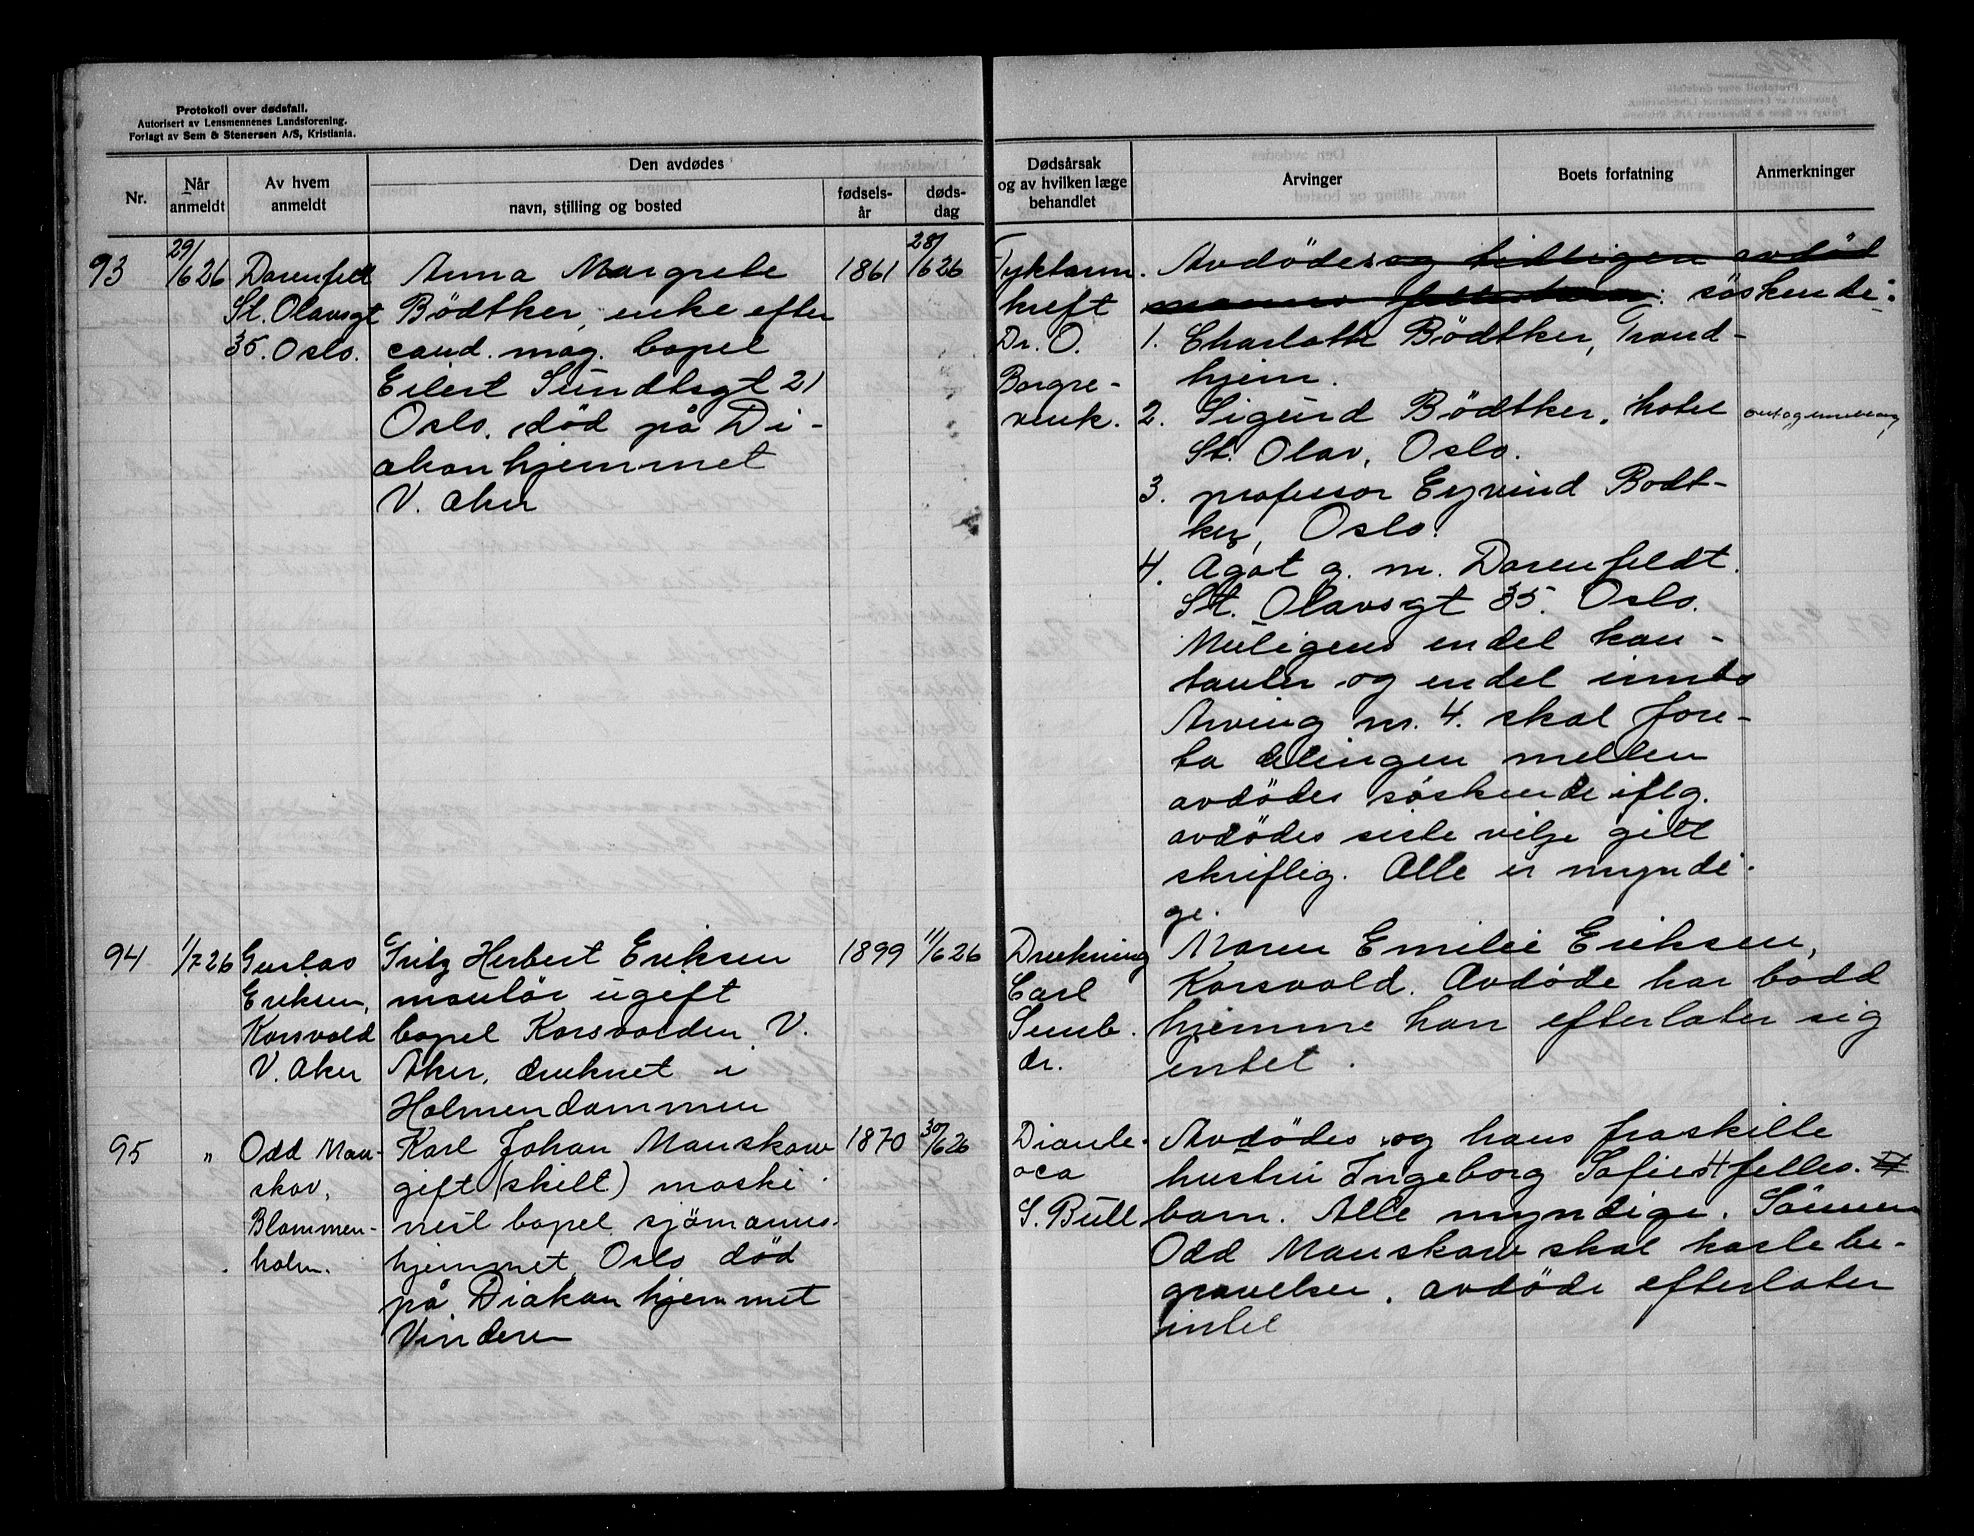 Protokoll over dødsfall.
Autorisert av Lensmennenes Landsforening.
Forlagt av Sem & Stenersen A/S, Kristiania.
Nr.
Når anmeldt
Av hvem anmeldt
Den avdødes
navn, stilling og bosted
fødsels-år
døds-dag
Dødsårsak og av hvilken læge behandlet
Arvinger
Boets forfatning
Anmerkninger
93
29/6 26
Darenfeldt
St. Olavsgt
35. Oslo.
Anna Margrete
Bödtker, enke efter
cand. mag. bopel
Eilert Sundtsgt 21
Oslo, död på Di-
akonhjemmet
V. Aker
1861
28/6 26
Tyktarm
kreft
Dr. O.
Borgre-
venk.
Avdødes og tidligere avdöd
søskende:
1. Charlotte Bödtker, Trond-
hjem.
2. Sigurd Bödtker, hotel
St. Olav, Oslo.
3. professor Eyvind Bødt-
ker, Oslo.
4. Agot g. m. Darenfeldt.
St. Olavsgt 35. Oslo.
Muligens endel kon-
tanter og endel innbo
Arving nr. 4. skal fore-
ta delingen mellem
avdödes søskende iflg.
avdödes siste vilje gitt
skriftlig. Alle er myndi-
ge.
94
1/7 26
Gustav
Eriksen,
Korsvold
V. Aker
Fritz Herbert Eriksen
montör ugift
bopel Korsvolden V.
Aker, druknet i
Holmendammen
1899
11/6 26
Drukning
Carl
Semb.
dr.
Maren Emilie Eriksen,
Korsvold. Avdøde har bodd
hjemme han efterlater sig
intet.
95
"
Odd Man-
skov,
Blommen-
holm.
Karl Johan Manskow
gift (skilt) maski-
nist bopel sjömanns-
hjemmet Oslo död
på Diakonhjemmet
Vinderen
1870
30/6 26
S. Bull
Avdødes og hans fraskilte
hustru Ingeborg Sofies 4 felles
barn. Alle myndige. Sönnen
Odd Manskow skal koste be-
gravelsen. avdöde efterlater
intet